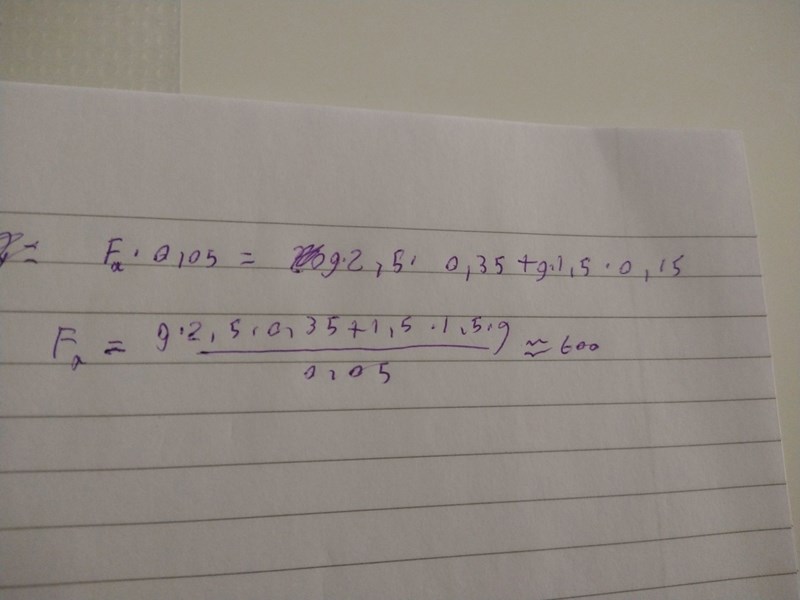 F_a · 0,05 = g·2,5· 0,35 + g·1,5·0,15
F_a = g·2,5·0,35+1,5·1,5·g / 0,05 ≈ 600